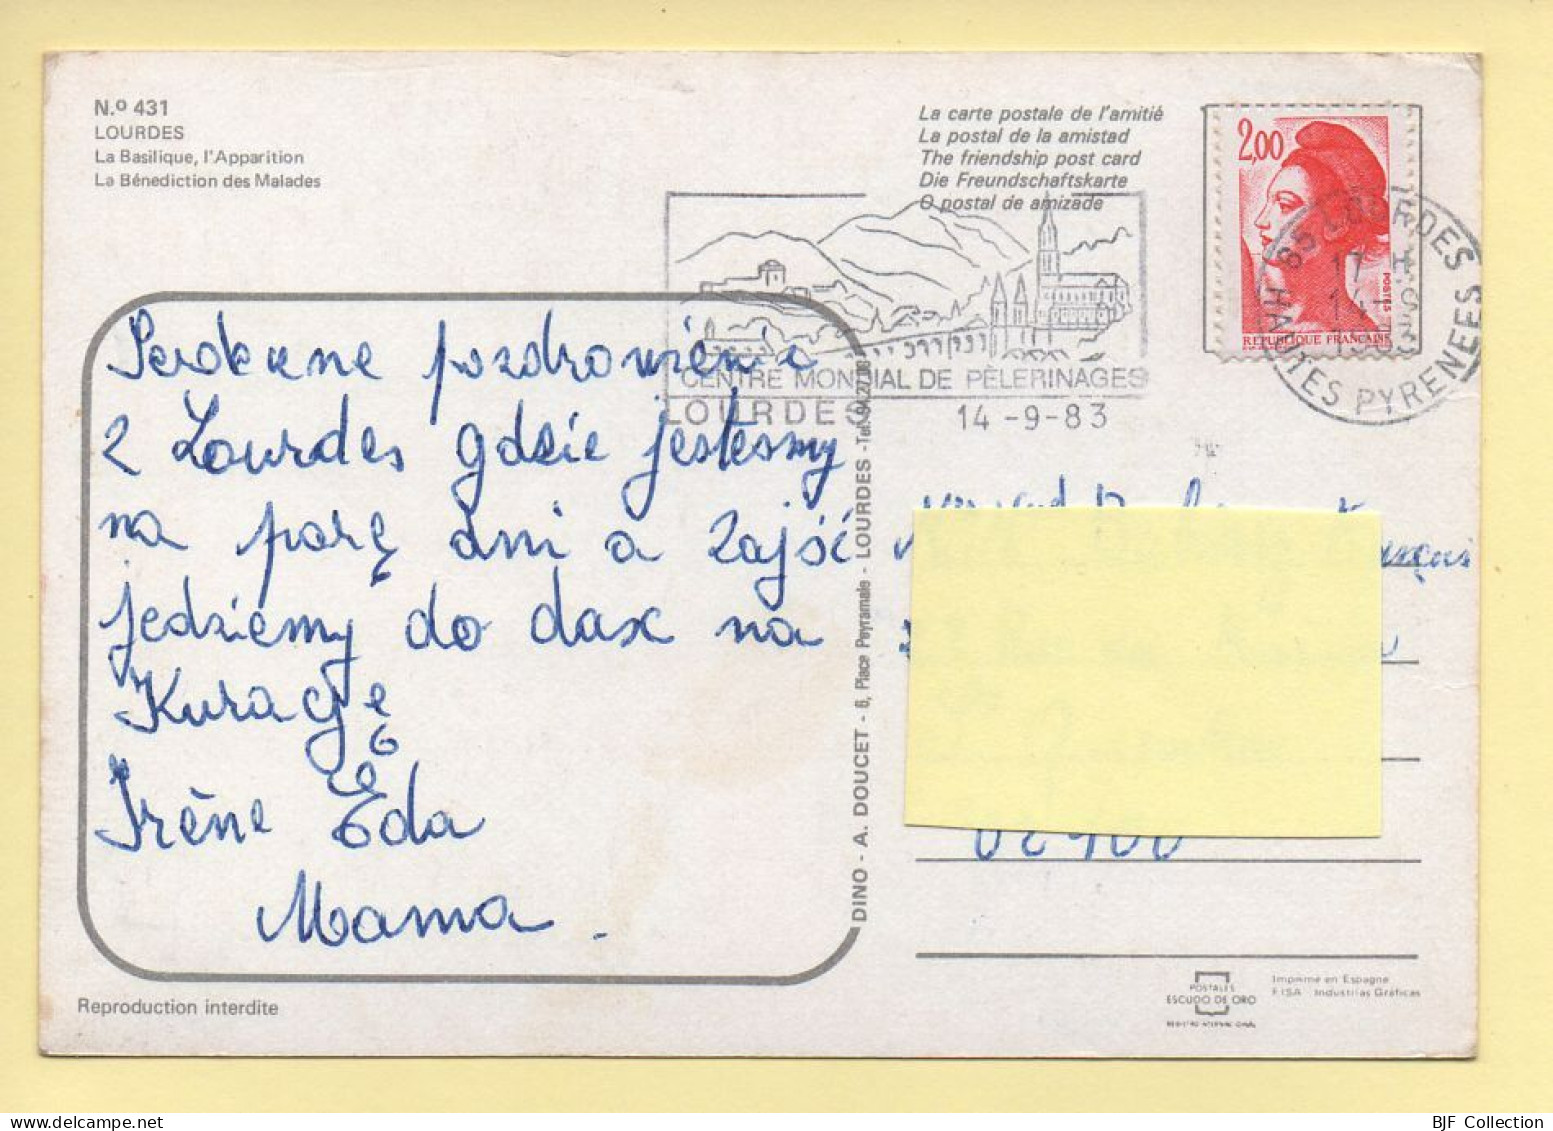 N.º 431
LOURDES
La Basilique, l'Apparition
La Bénediction des Malades
La carte postale de l'amitié
La postal de la amistad
The friendship post card
Die Freundschaftskarte
O postal de amizade
2,00
POSTES
REPUBLIQUE FRANÇAISE
LOURDES
HAUTES PYRENEES
CENTRE MONDIAL DE PÈLERINAGES
LOURDES 14-9-83
Serdeczne pozdrowienia
z Lourdes gdzie jestesmy
na parę dni a zajść
jedziemy do dax na
Kurację
Irène Eda
Mama.
DINO - A. DOUCET - 6, Place Peyramale - LOURDES - Tel. 94.27.08
02400
Reproduction interdite
POSTALES
ESCUDO DE ORO
Imprimé en Espagne
FISA - Industrias Gráficas
BJF Collection